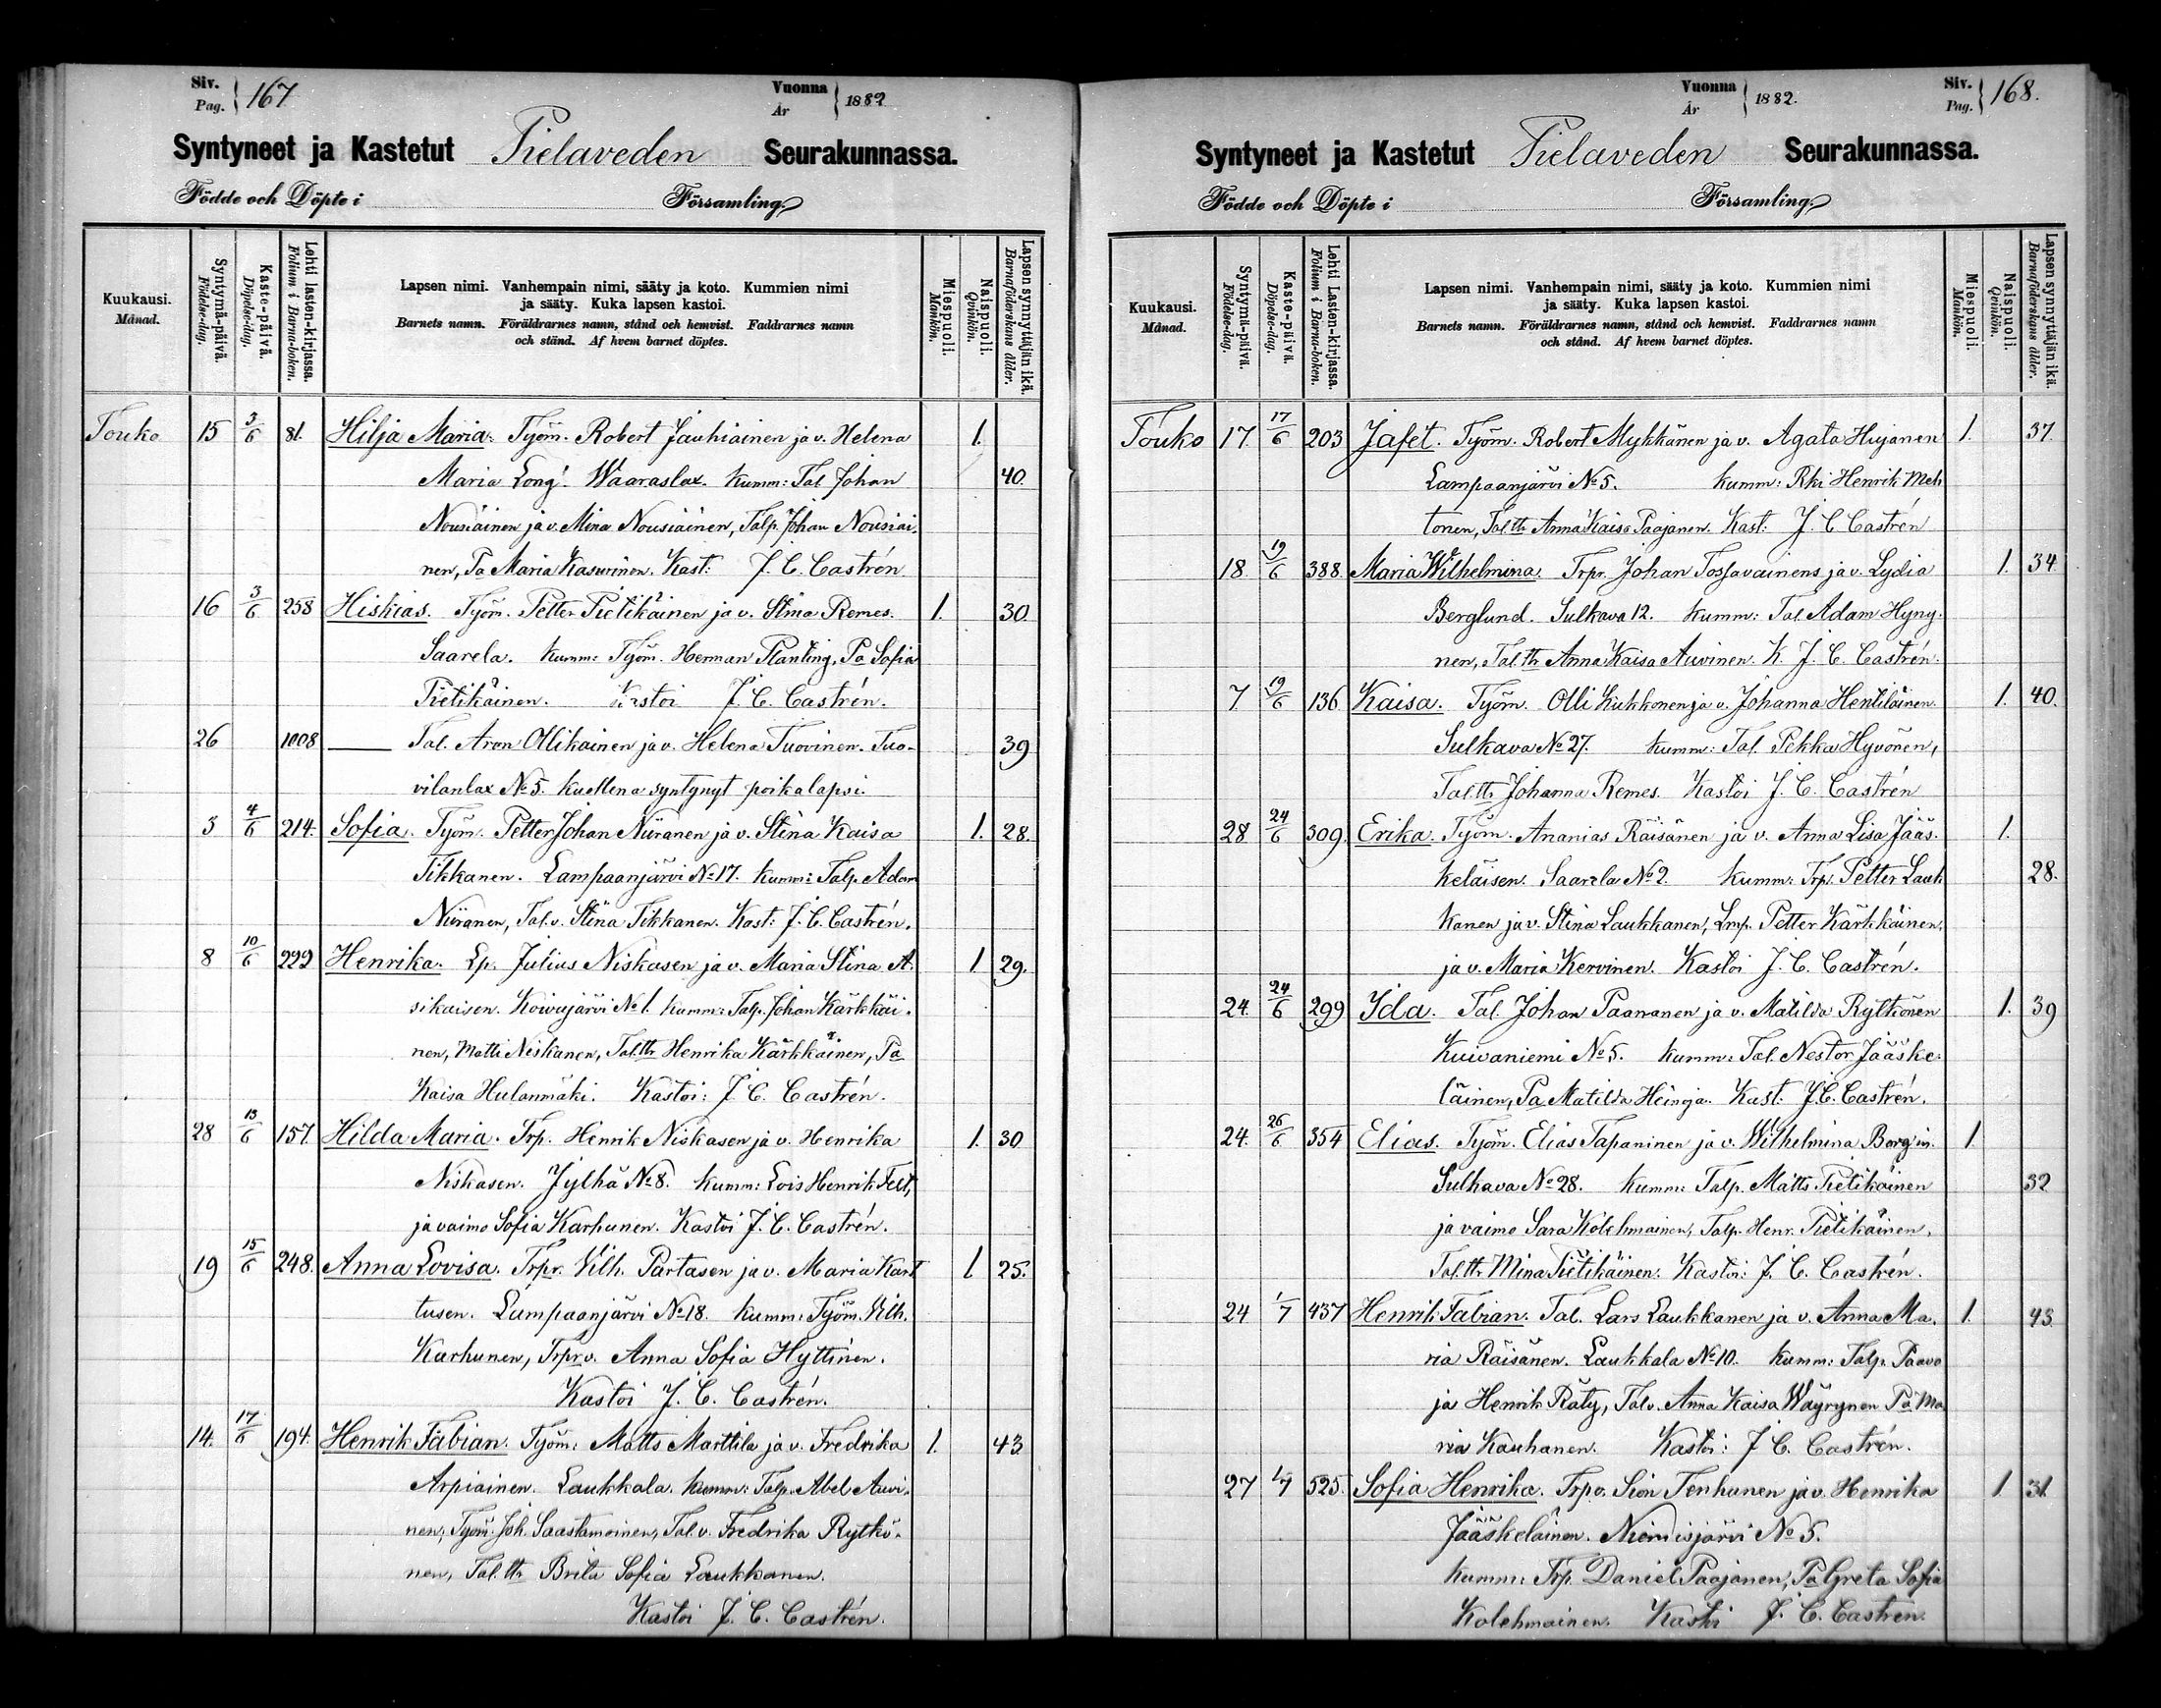 Siv.
Pag. 167
Vuonna
År 1882
Syntyneet ja Kastetut Pielaveden Seurakunnassa.
Födde och Döpte i Församling
Kuukausi.
Månad.
Syntymä-päivä.
Födelse-dag.
Kaste-päivä.
Döpelse-dag.
Lehti lasten-kirjassa.
Folium i Barna-boken.
Lapsen nimi. Vanhempain nimi, sääty ja koto. Kummien nimi
ja sääty. Kuka lapsen kastoi.
Barnets namn. Föräldrarnes namn, stånd och hemvist. Faddrarnes namn
och stånd. Af hvem barnet döptes.
Miespuoli.
Mankön.
Naispuoli.
Qvinkön.
Lapsen synnyttäjän ikä.
Barnaföderskans ålder.
Touko 15 3/6 81. Hilja Maria. Työm. Robert Jauhiainen ja v. Helena 1.
Maria Long. Waaraslax. Kumm: Tal Johan 40.
Nousiainen ja v. Mina Nousiainen, Talp. Johan Nousiai-
nen, Pa Maria Kasurinen. Kast: J. C. Castrén
16 3/6 258 Hiskias. Työm. Petter Pietikäinen ja v. Stina Remes. 1. 30
Saarela. Kumm: Työm. Herman Planting, Pa Sofia
Pietikäinen. Kastoi J. C. Castrén.
26 1008 Tal. Aron Ollikainen ja v. Helena Tuovinen. Tuo- 39
vilanlax No 5. Kuollena syntynyt poikalapsi.
3 4/6 214. Sofia. Työm. Petter Johan Niiranen ja v. Stina Kaisa 1. 28.
Tikkanen. Lampaanjärvi No 17. Kumm: Talp. Adam
Niiranen, Tal. v. Stina Tikkanen. Kast: J. C. Castrén.
8 10/6 222 Henrika. Lp. Julius Niskasen ja v. Maria Stina A- 1 29.
sikaisen. Koivujärvi No 1. Kumm: Talp. Johan Kärkkäi-
nen, Matti Niskanen, Tal.tr Henrika Kärkkäinen, Pa
Kaisa Hulanmäki. Kastoi: J. C. Castrén.
28 13/6 157. Hilda Maria. Trp. Henrik Niskasen ja v. Henrika 1. 30
Niskasen. Jylhä No 8. Kumm: Lois Henrik Felt,
ja vaimo Sofia Karhunen. Kastoi J. C. Castrén.
19 15/6 248. Anna Lovisa. Trpr. Vilh. Partasen ja v. Maria Kart 1 25.
tusen. Lampaanjärvi No 18. Kumm: Työm. Vilh.
Karhunen, Trpr v. Anna Sofia Hyttinen.
Kastoi J. C. Castrén.
14. 17/6 194. Henrik Fabian. Työm: Matts Marttila ja v. Fredrika 1. 43
Arpiainen. Laukkala. Kumm: Talp. Abel Auvi-
nen, Työm. Joh. Saastamoinen, Tal. v. Fredrika Rytkö-
nen, Tal.tr Brita Sofia Laukkanen.
Kastoi J. C. Castrén.
Vuonna
År 1882.
Siv.
Pag. 168.
Syntyneet ja Kastetut Pielaveden Seurakunnassa.
Födde och Döpte i Församling
Kuukausi.
Månad.
Syntymä-päivä.
Födelse-dag.
Kaste-päivä.
Döpelse-dag.
Lehti Lasten-kirjassa.
Folium i Barna-boken.
Lapsen nimi. Vanhempain nimi, sääty ja koto. Kummien nimi
ja sääty. Kuka lapsen kastoi.
Barnets namn. Föräldrarnes namn, stånd och hemvist. Faddrarnes namn
och stånd. Af hvem barnet döptes.
Miespuoli.
Mankön.
Naispuoli.
Qvinkön.
Lapsen synnyttäjän ikä.
Barnaföderskans ålder.
Touko 17. 17/6 203 Jafet. Työm. Robert Mykkänen ja v. Agata Hujanen 1. 37.
Lampaanjärvi No 5. Kumm: Rki Henrik Meh
tonen, Tal.tr Anna Kaisa Paajanen. Kast: J. C Castrén
18. 19/6 388. Maria Wilhelmina. Trpr. Johan Tossavainens ja v. Lydia 1. 34.
Berglund. Sulkava 12. Kumm: Tal Adam Hyny-
nen, Tal.tr Anna Kaisa Auvinen. K. J. C. Castrén.
7. 19/6 136 Kaisa. Työm. Olli Kukkonen ja v. Johanna Hentiläinen. 1. 40.
Sulkava No 27. Kumm: Tal. Pekka Hyvönen,
Tal.tr Johanna Remes. Kastoi J. C. Castrén
28 24/6 309. Erika. Työm. Ananias Räisänen ja v. Anna Lisa Jääs- 1.
keläisen. Saarela No 2. Kumm: Trp. Petter Lauk 28.
kanen ja v. Stina Laukkanen, Lmp. Petter Kärkkäinen,
ja v. Maria Kervinen. Kastoi J. C. Castrén.
24. 24/6 299 Ida. Tal. Johan Paananen ja v. Matilda Rytkönen 1. 39
Kuivaniemi No 5. Kumm: Tal. Nestor Jääske-
läinen, Pa Matilda Heinoja. Kast: J. C. Castrén.
24. 26/6 354 Elias. Työm. Elias Tapaninen ja v. Wilhelmina Borg in. 1.
Sulkava No 28. Kumm: Talp. Matts Pietikäinen 32
ja vaimo Sara Kolehmainen, Talp. Henr. Pietikäinen,
Tal.tr Mina Pietikäinen. Kastoi: J. C. Castrén.
24 1/7 437 Henrik Fabian. Tal. Lars Laukkanen ja v. Anna Ma- 1. 43
ria Räisänen. Laukkala No 10. Kumm: Talp. Paavo
ja Henrik Räty, Tal v. Anna Kaisa Wäyrynen Pa Ma
ria Kauhanen. Kastoi: J C. Castrén.
27 1/7 525. Sofia Henrika. Trp v. Sion Tenhunen ja v. Henrika 1. 31.
Jääskeläinen. Niemisjärvi No 5.
Kumm: Trp. Daniel Paajanen, Pa Greta Sofia
Kolehmainen. Kastoi J. C. Castrén.